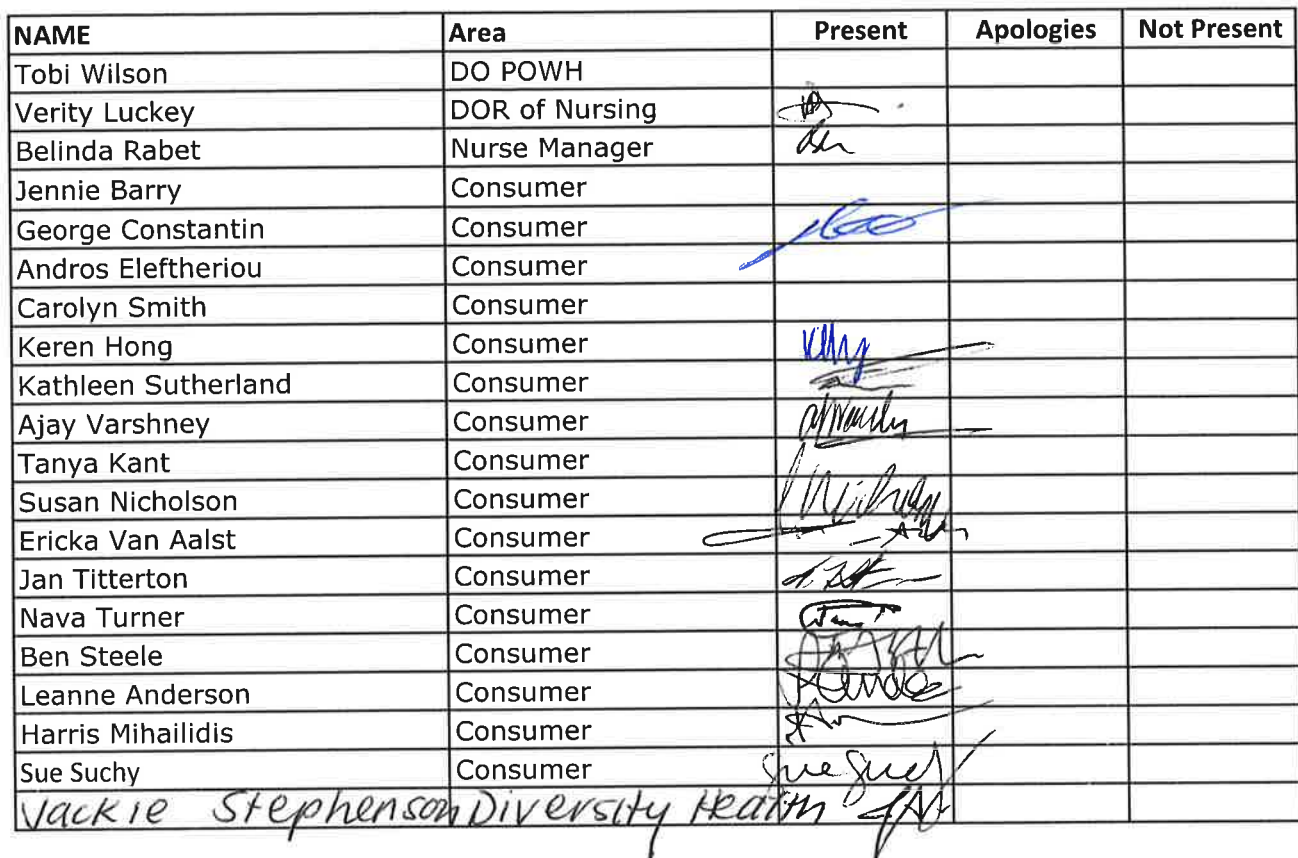 NAME Area Present Apologies Not Present
Tobi Wilson DO POWH
Verity Luckey DOR of Nursing
Belinda Rabet Nurse Manager
Jennie Barry Consumer
George Constantin Consumer
Andros Eleftheriou Consumer
Carolyn Smith Consumer
Keren Hong Consumer
Kathleen Sutherland Consumer
Ajay Varshney Consumer
Tanya Kant Consumer
Susan Nicholson Consumer
Ericka Van Aalst Consumer
Jan Titterton Consumer
Nava Turner Consumer
Ben Steele Consumer
Leanne Anderson Consumer
Harris Mihailidis Consumer
Sue Suchy Consumer Sue Suchy
Jackie Stephenson Diversity Health